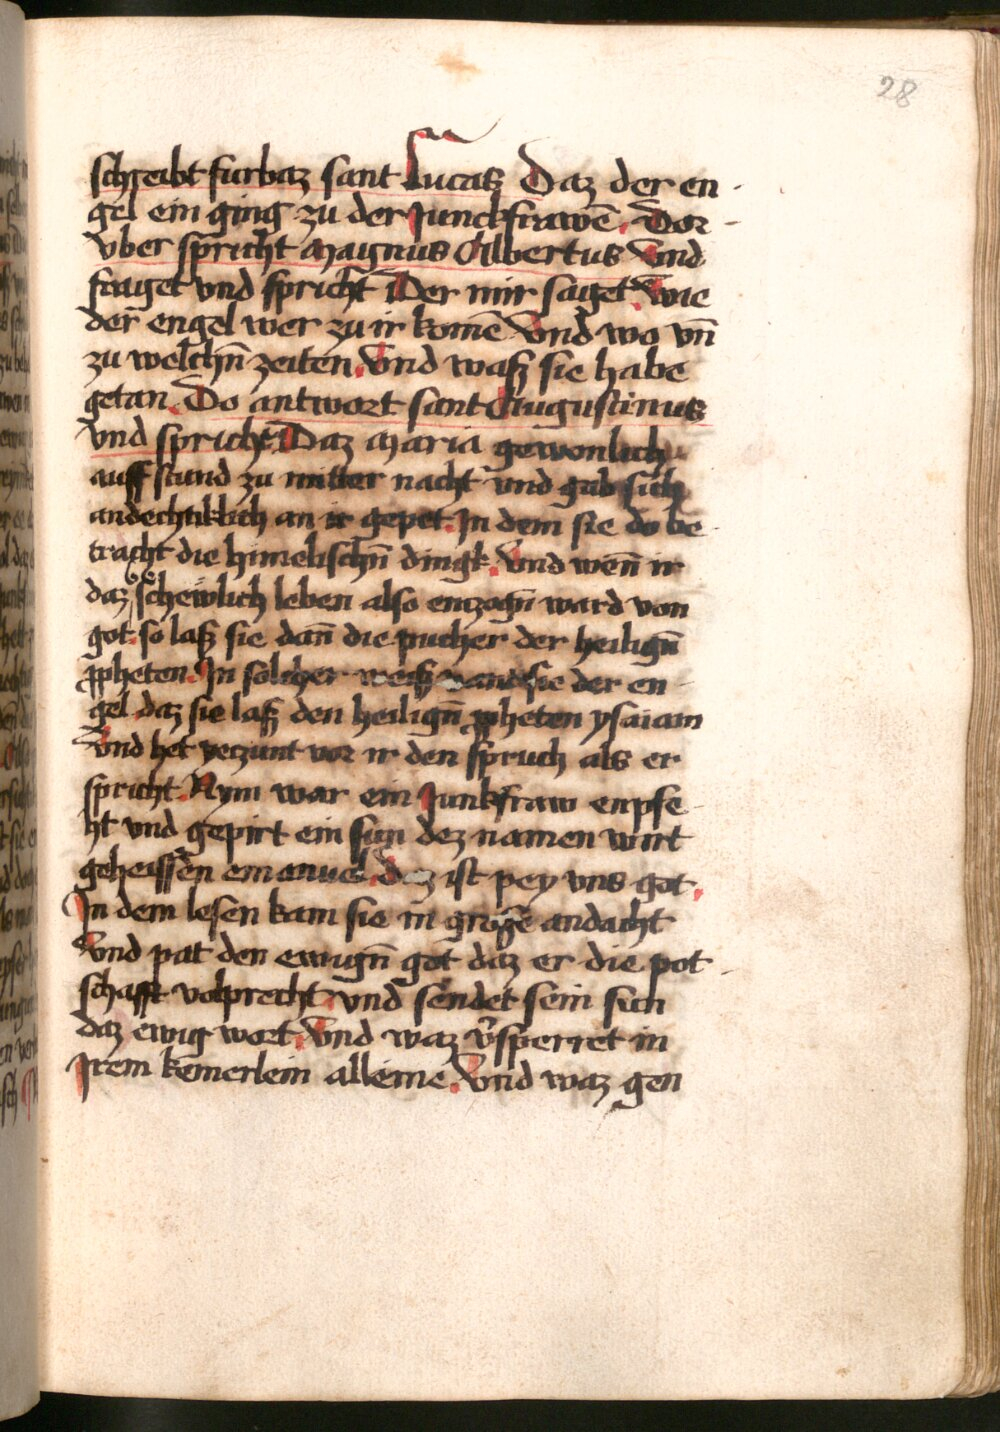 28
schreibt furbaz sant Lucas Daz der en
gel ein ging zu der Junckfrawē. Vor
vber spricht Magnus Albertus Vnd
fraget vnd spricht Der mir saget wie
der engel wer zu ir komē Vnd wo vn̄
zu welchn̄ zeiten. Vnd waß sie habe
getan. Do antwort sant Augustinus
vnd spricht Daz Maria gewonlich
auff stund zu mitter nacht vnd gab sich
andechtiklich an ir gepet. In dem sie do be
tracht die himelischn̄ dingk. Vnd wen̄ ir
daz schewlich leben also enzogn̄ ward von
got. so laß sie dan̄ die pucher der heilign̄
ꝓpheten. In solicher weiß vand sie der en
gel daz sie laß den heilign̄ ꝓpheten ysaiam
Vnd het yeczunt vor ir den spruch als er
spricht. Nym war ein Junkfraw enpfe
ht vnd gepirt ein sun dez namen wirt
geheissen emanuel. daz ist pey vns got.
In dem lesen kam sie in große andacht
Vnd pat den ewign̄ got daz er die pot
schafft volprecht vnd sendet sein sun
daz ewig wort. Vnd waz v̄sperret in
Irem kemerlein alleine. Vnd waz gen